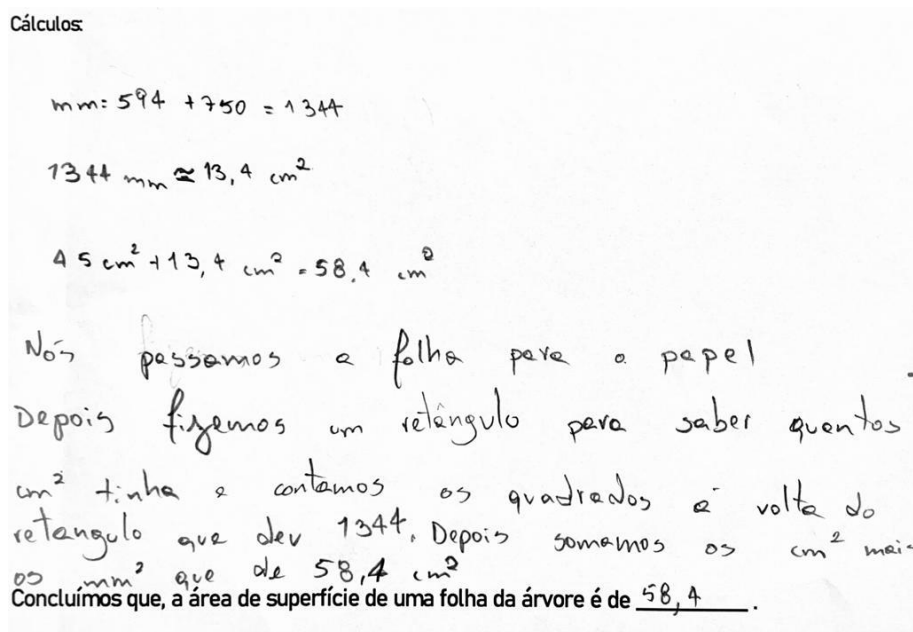 Cálculos:
mm: 594 + 750 = 1344
1344 mm ≃ 13,4 cm²
45 cm² + 13,4 cm² = 58,4 cm²
Nós passamos a folha para o papel
Depois fizemos um retângulo para saber quantos
cm² tinha e contamos os quadrados á volta do
retangulo que deu 1344. Depois somamos os cm² mais
os mm² que de 58,4 cm²
Concluímos que, a área de superfície de uma folha da árvore é de 58,4.